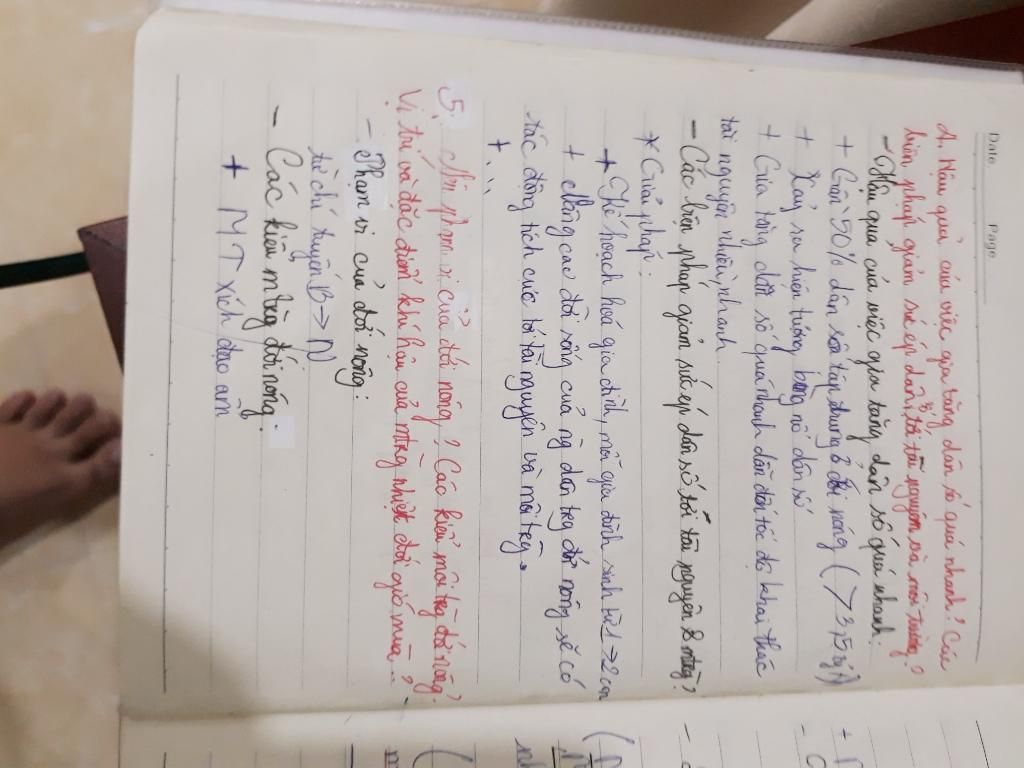 Date Page
4. Hậu quả của việc gia tăng dân số quá nhanh? Các
biện pháp giảm sức ép dân số tới tài nguyên và môi trường?
- Hậu quả của việc gia tăng dân số quá nhanh:
+ Gần 50% dân số tập trung ở đới nóng (> 3,5 tỷ)
+ Xảy ra hiện tượng bùng nổ dân số
+ Gia tăng dân số quá nhanh dẫn đến tốc độ khai thác
tài nguyên nhiên nhanh.
- Các biện pháp giảm sức ép dân số tới tài nguyên & mtrg?
* Giải pháp:
+ Kế hoạch hoá gia đình, mỗi gia đình sinh từ 1 → 2 con
+ Nâng cao đời sống của ng dân trg đới nóng sẽ có
tác động tích cực tới tài nguyên và môi trg.
+ ...
5. Nêu phạm vi của đới nóng? Các kiểu môi trg đới nóng?
Vị trí và đặc điểm khí hậu của mtrg nhiệt đới gió mùa?
- Phạm vi của đới nóng:
từ chí tuyến B → N
- Các kiểu mtrg đới nóng.
+ MT xích đạo ẩm